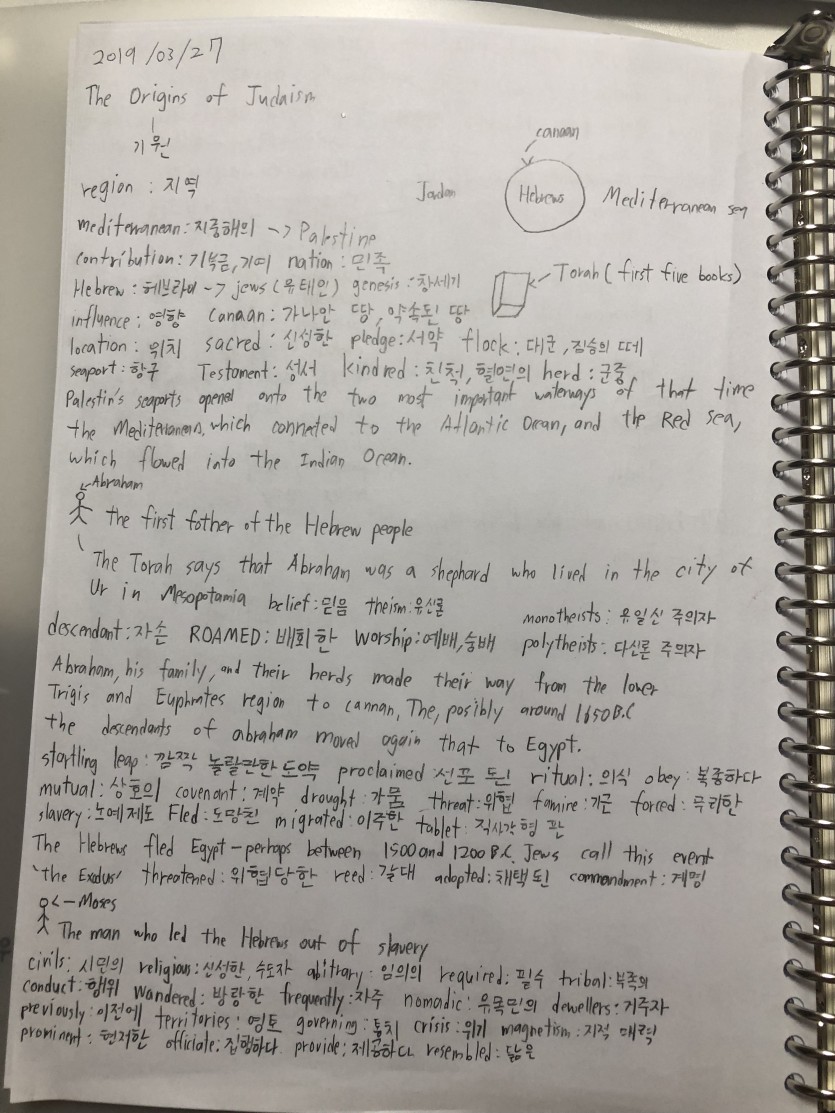 2019/03/27
The Origins of Judaism
기원
canaan
region : 지역
Jordan
Hebrews
Mediterranean sea
mediterranean: 지중해의 -> Palestine
contribution: 기부금, 기여 nation : 민족
Torah (first five books)
Hebrew : 헤브라이 -> jews (유태인) genesis : 창세기
influence : 영향 Canaan : 가나안 땅, 약속된 땅
location : 위치 sacred : 신성한 pledge: 서약 flock : 대군, 짐승의 떼
seaport : 항구 Testament : 성서 kindred : 친척, 혈연의 herd : 군중
Palestin's seaports opened onto the two most important waterways of that time
the Mediterranean, which connected to the Atlantic Ocean, and the Red Sea,
which flowed into the Indian Ocean.
<-Abraham
the first father of the Hebrew people
The Torah says that Abraham was a shephard who lived in the city of
Ur in Mesopotamia belief : 믿음 theism: 유신론 monotheists : 유일신 주의자
descendant : 자손 ROAMED : 배회한 Worship : 예배, 숭배 polytheists : 다신론 주의자
Abraham, his family, and their herds made their way from the lower
Trigis and Euphrates region to cannan, The, posibly around 1650 B.C
the descendants of abraham moved again that to Egypt.
startling leap : 깜짝 놀랄만한 도약 proclaimed 선포 된 ritual : 의식 obey : 복종하다
mutual : 상호의 covenant : 계약 drought : 가뭄 threat : 위협 famire : 기근 forced : 무리한
slavery : 노예 제도 Fled : 도망친 migrated : 이주한 tablet : 직사각형 판
The Hebrews fled Egypt - perhaps between 1500 and 1200 B.C. Jews call this event
'the Exodus' threatened : 위협당한 reed : 갈대 adopted : 채택 된 commandment : 계명
<- Moses
The man who led the Hebrews out of slavery
civils : 시민의 religious : 신성한, 수도자 abitrary : 임의의 required : 필수 tribal : 부족의
conduct : 행위 Wandered : 방랑한 frequently : 자주 nomadic : 유목민의 dewellers : 거주자
previously : 이전에 territories : 영토 governing : 통치 crisis : 위기 magnetism : 지적 매력
prominent : 현저한 officiate : 집행하다. provide : 제공하다. resembled : 닮은